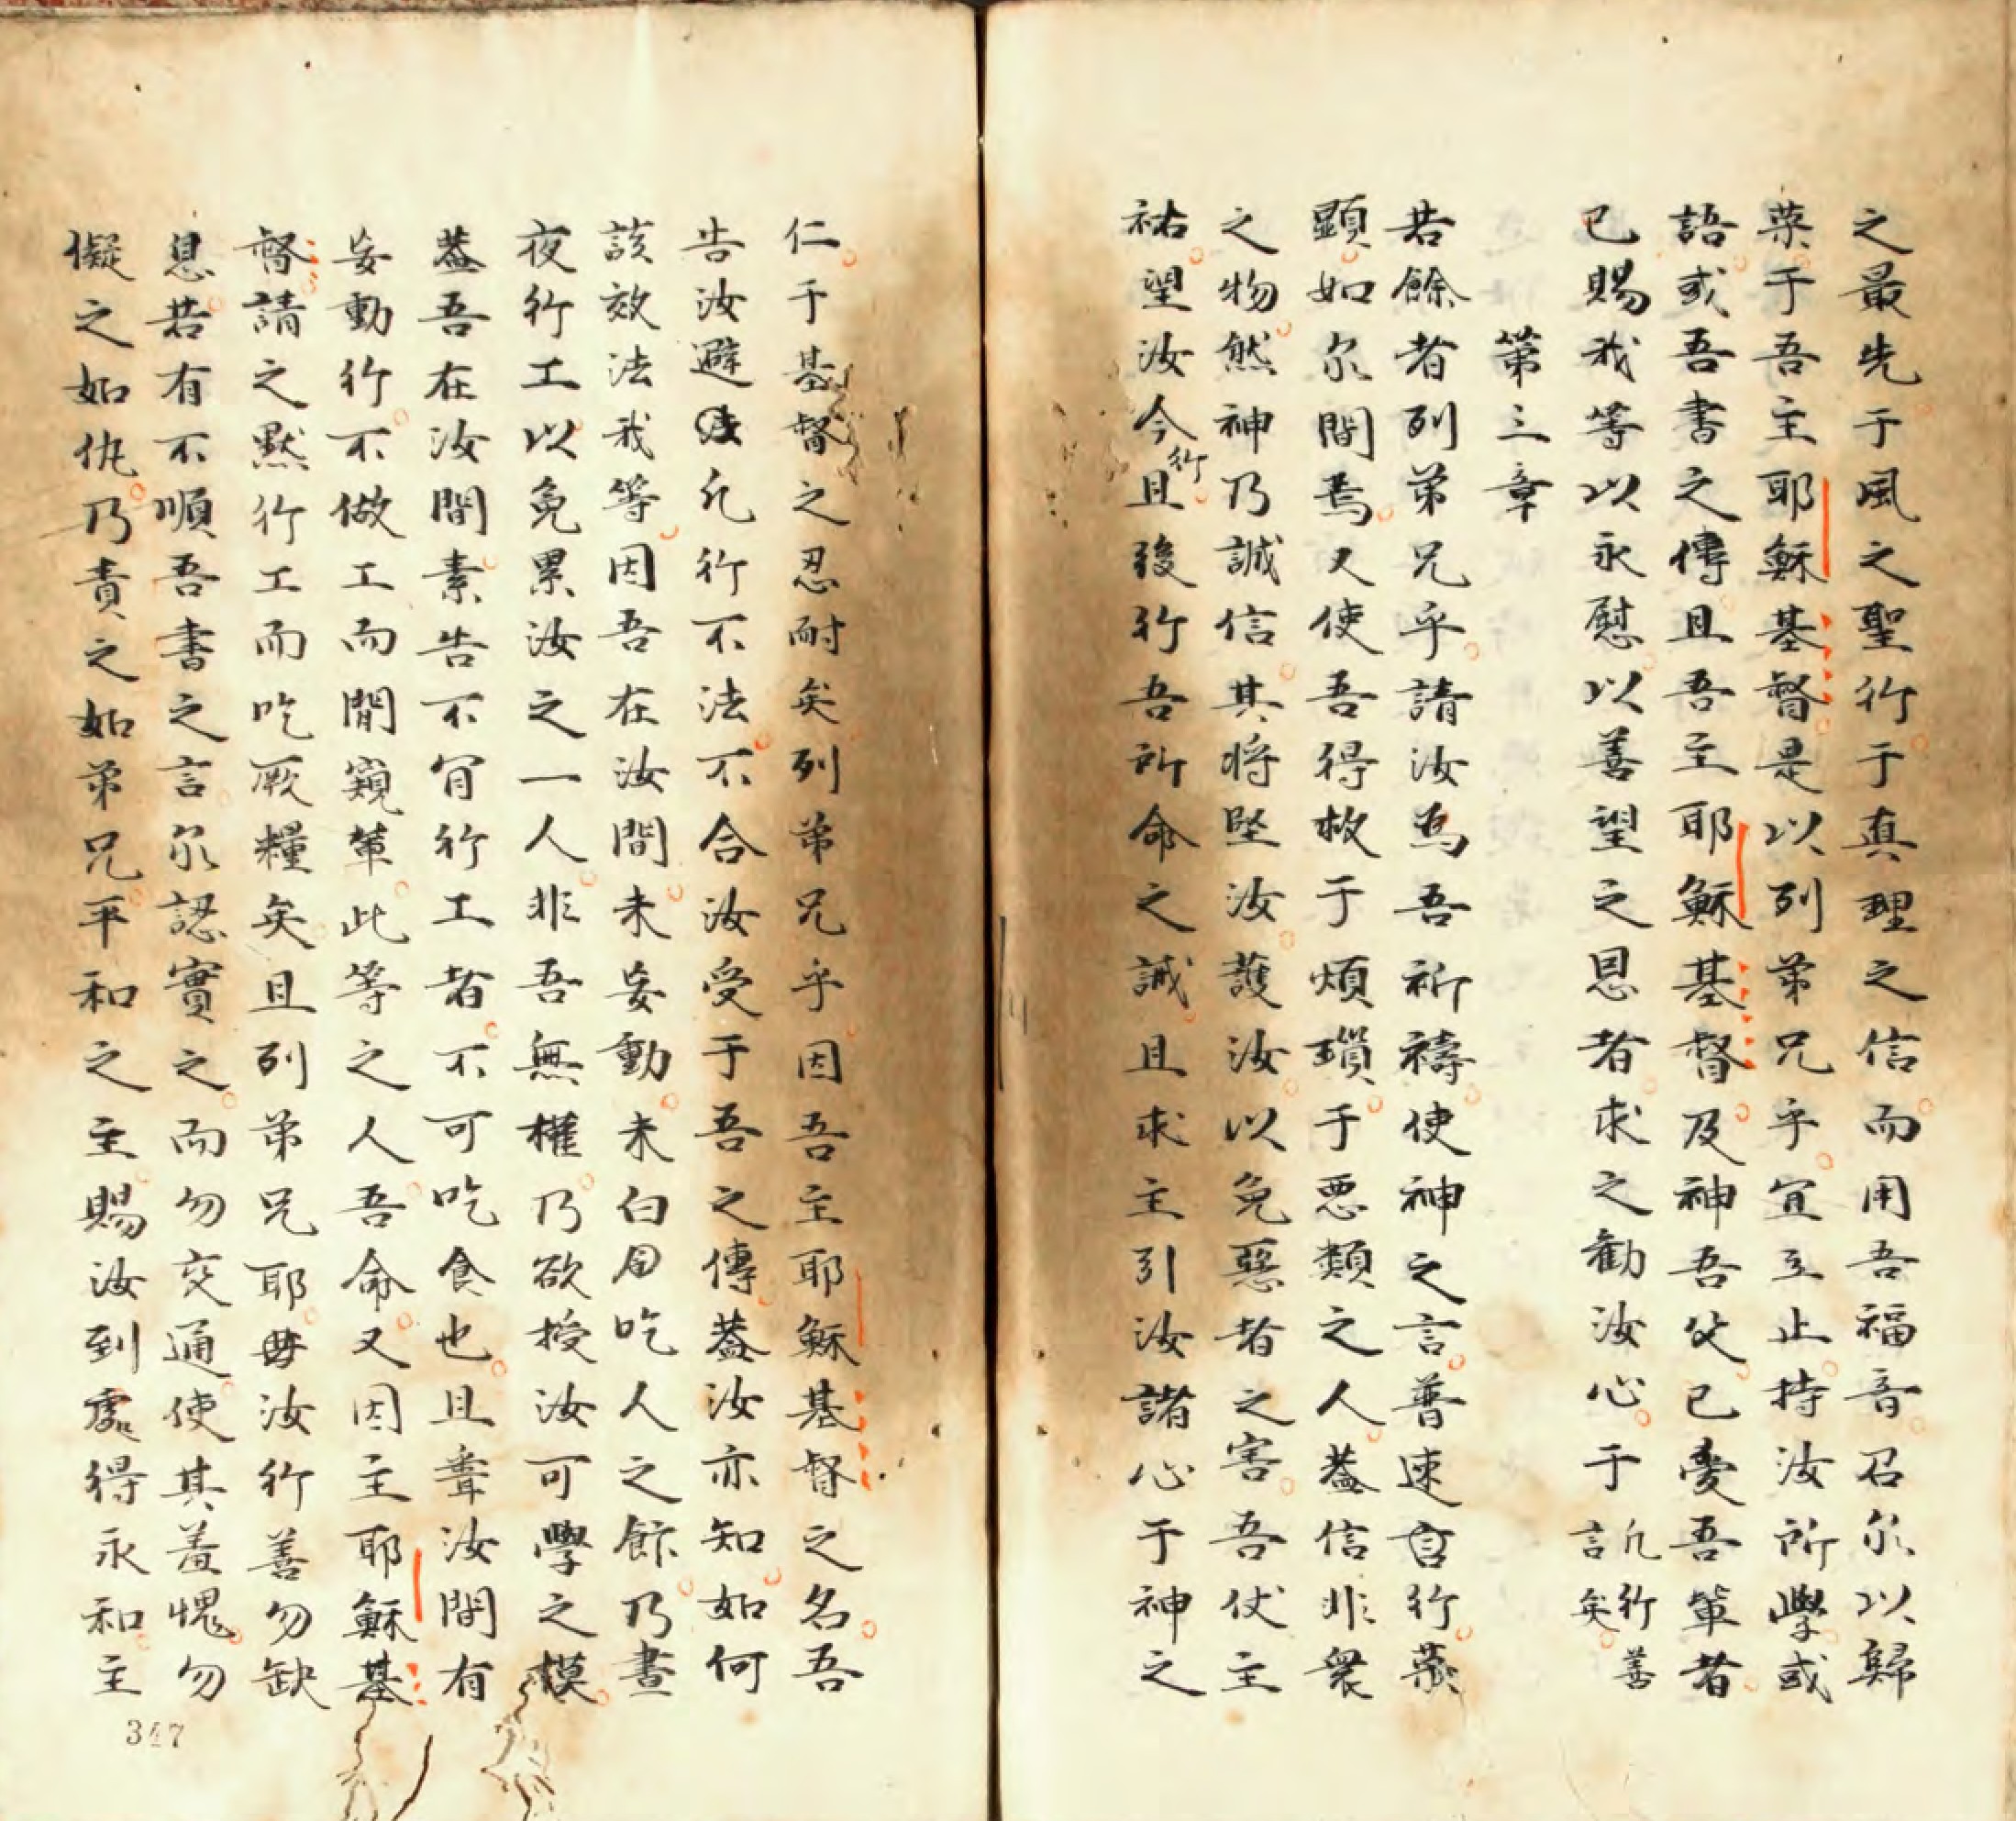 之最先于風之聖行于真理之信而用吾福音召尔以歸
荣于吾主耶穌基督是以列弟兄乎宜立止持汝所學或
語或吾書之傳且吾主耶穌基督及神吾父已愛吾輩者
已賜我等以永慰以善望之恩者求之勸汝心于凡行善言矣
第三章
若餘者列弟兄乎請汝為吾祈禱使神之言普速自行榮
顕如尔間焉又使吾得救于煩瑣于悪類之人蓋信非衆
之物然神乃誠信其將堅汝護汝以免惡者之害吾伏主
祐望汝今行且後行吾所命之誡且求主引汝諸心于神之
仁于基督之忍耐矣列弟兄乎因吾主耶穌基督之名吾
告汝避凡行不法不合汝受于吾之傳蓋汝亦知如何
該效法我等因吾在汝間未妄動未白囙吃人之餅乃晝
夜行工以免累汝之一人非吾無權乃欲授汝可學之模
蓋吾在汝間素告不肎行工者不可吃食也且聞汝間有
妄動行不做工而閒窺輩此等之人吾命又因主耶穌基
督請之黙行工而吃厥糧矣且列弟兄耶毋汝行善勿缺
息若有不順吾書之言尔認實之而勿交通使其羞愧勿
儗之如仇乃責之如弟兄平和之主賜汝到處得永和主
347